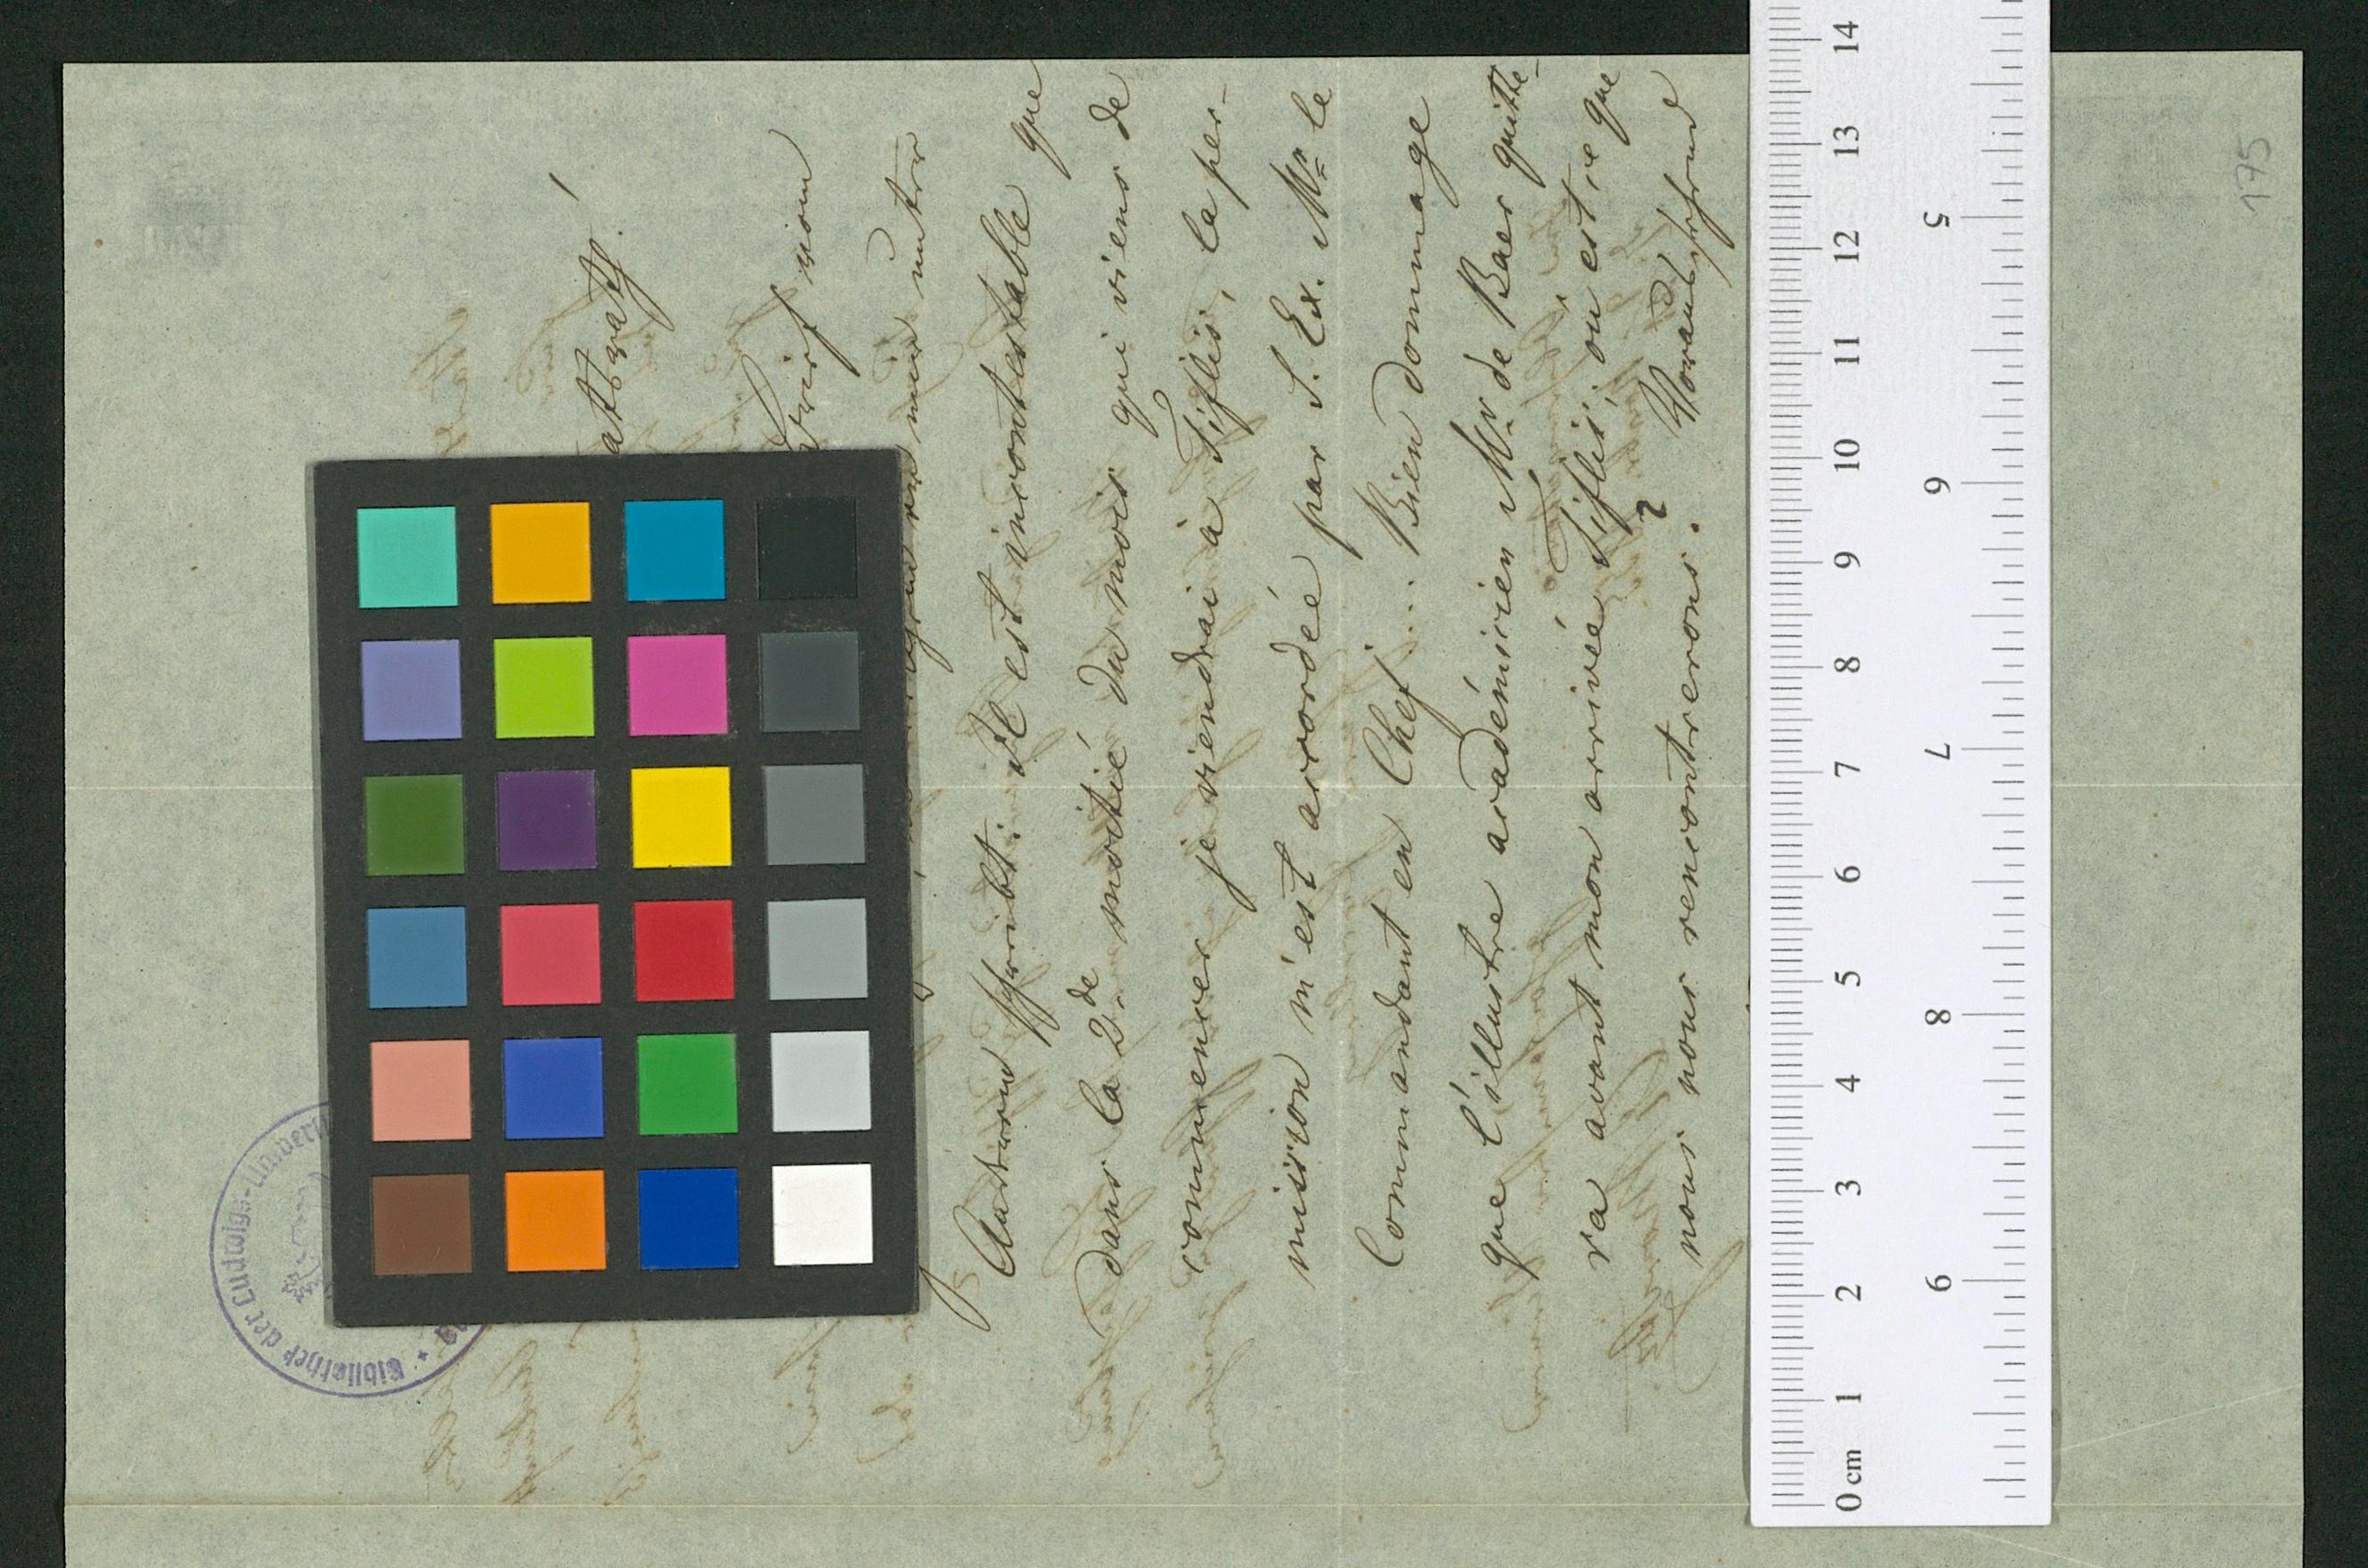 Brief vom
mir unter
Anderem schreibt: "il est incontestable que
dans la 2de moitié du mois qui viens de
commencer je viendrai à Tiflis, la per-
mission m'est accordée par S. Ex. Mr le
Commandant en Chef.... Bien dommage
que l'illustre académicien Mr de Baer quitte-
ra avant mon arrivée Tiflis; ou est ce que
nous nous rencontrerons?
175
Bibliothek der Ludwigs-Univers
0 cm 1 2 3 4 5 6 7 8 9 10 11 12 13 14
5 6 7 8 9